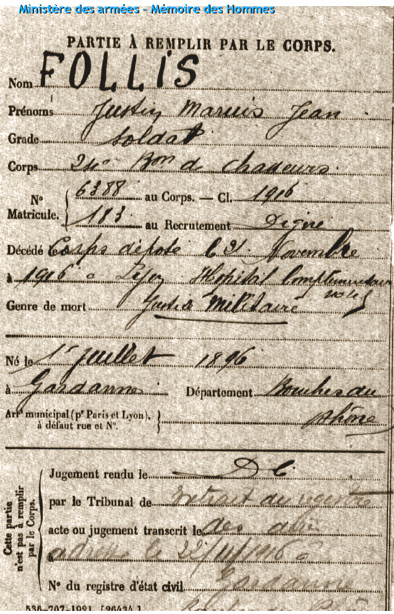 Ministère des armées - Mémoire des Hommes
PARTIE À REMPLIR PAR LE CORPS.
Nom FOLLIS
Prénoms Justin Marius Jean
Grade Soldat
Corps 24e Bon d chasseurs
Nº Matricule. 6388 au Corps. — Cl. 1916
183 au Recrutement Digne
Décédé Corps déposé le 21 Novembre
à 1916 à Hopital Complementaire
Genre de mort Justice Militaire
Né le 1er juillet 1896
à Gardanne Département Bouches du
Rhône
Arrt municipal (pr Paris et Lyon),
à défaut rue et Nº.
Cette partie
n'est pas à remplir
par le Corps.
Jugement rendu le
par le Tribunal de Extrait du registre
acte ou jugement transcrit le des
le 22/11/1916 à
Nº du registre d'état civil Gardanne